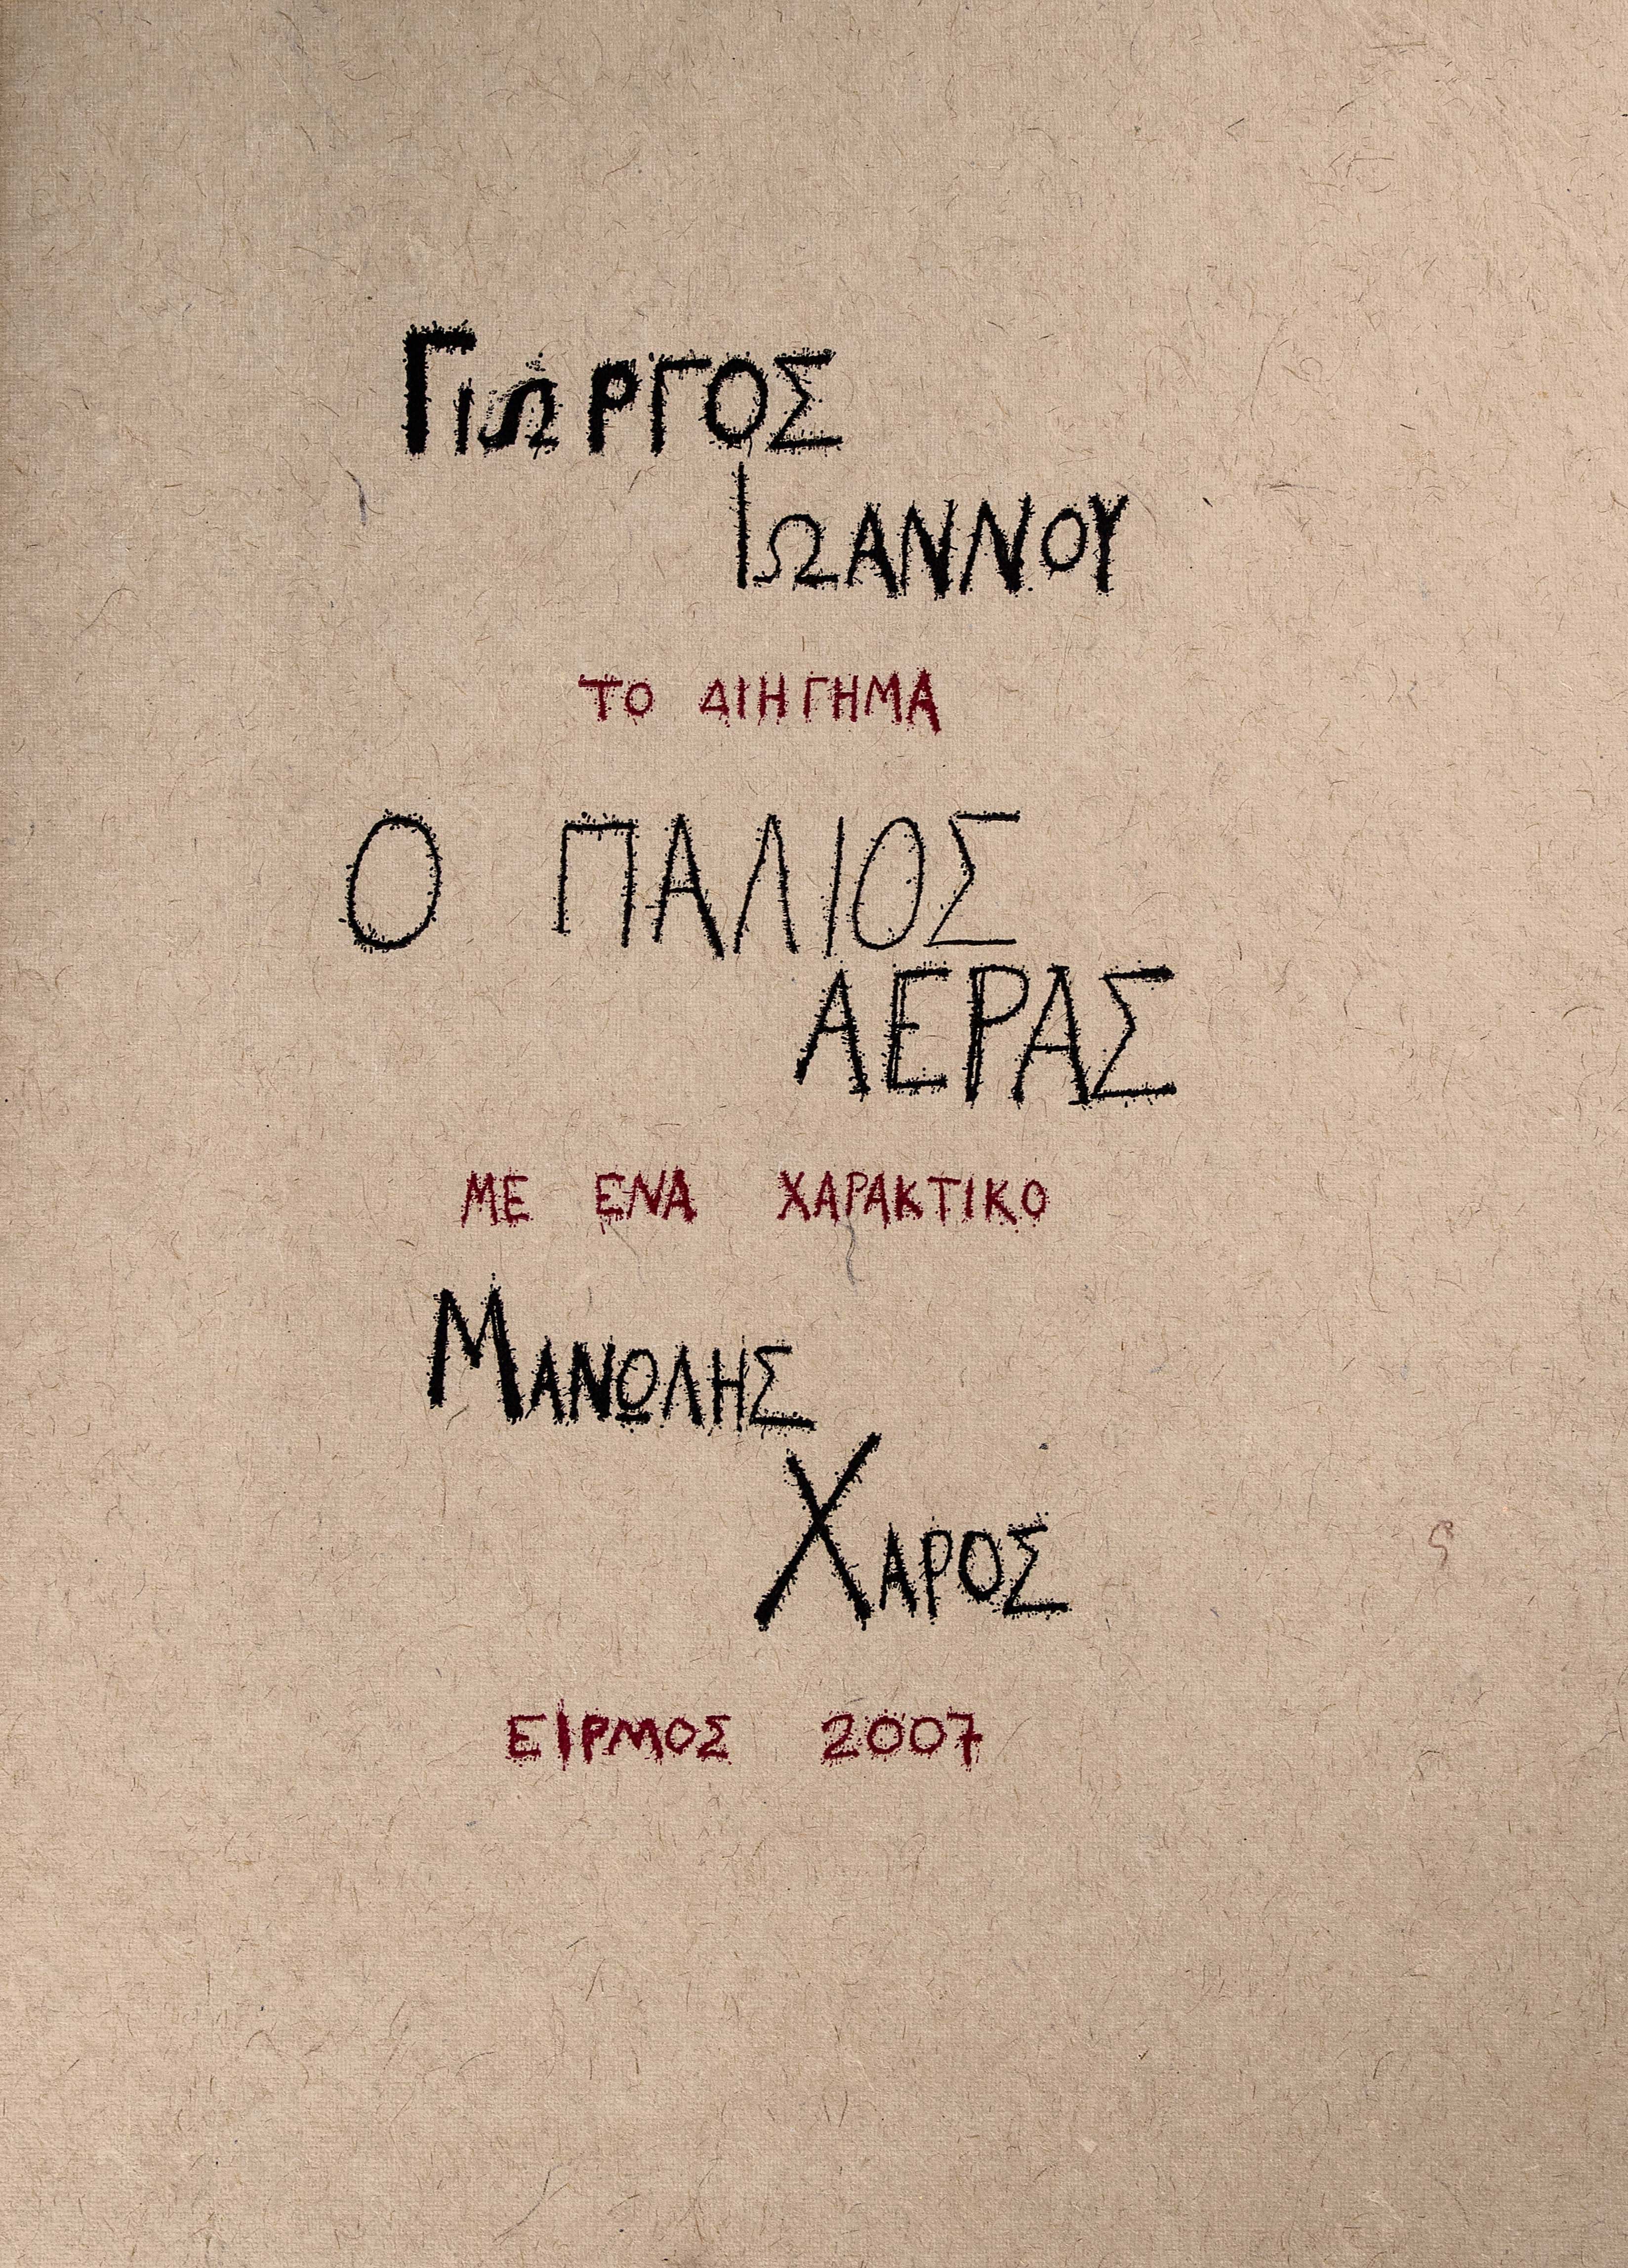 ΓΙΩΡΓΟΣ
ΙΩΑΝΝΟΥ
ΤΟ ΔΙΗΓΗΜΑ
Ο ΠΑΛΙΟΣ
ΑΕΡΑΣ
ΜΕ ΕΝΑ ΧΑΡΑΚΤΙΚΟ
ΜΑΝΩΛΗΣ
ΧΑΡΟΣ
ΕΙΡΜΟΣ 2007